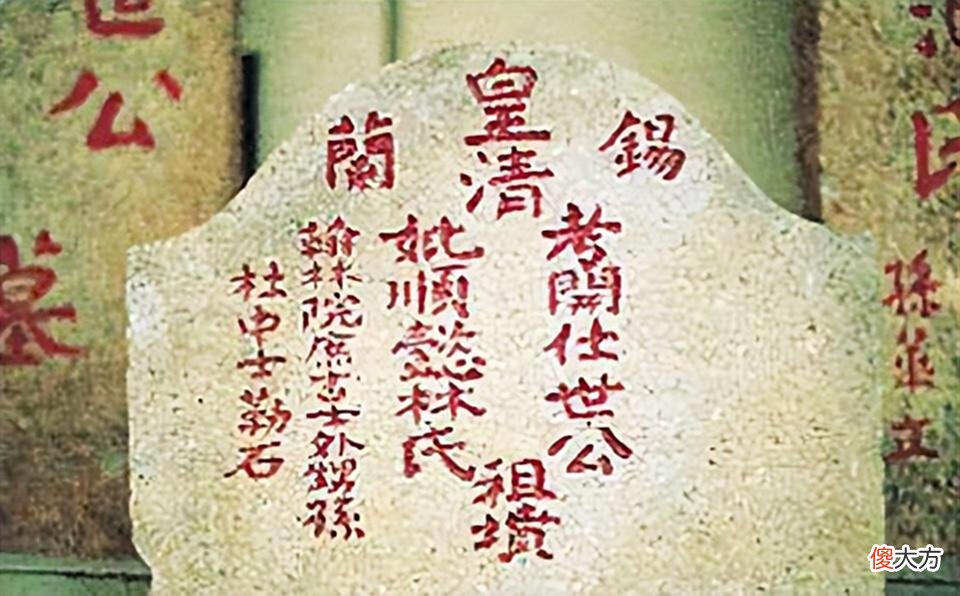 孫並立
氏
皇清
錫蘭
考開仕世公
妣順懿林氏
祖墳
翰林院庶吉士外甥孫
杜中士勒石
世公
墓
傻大方